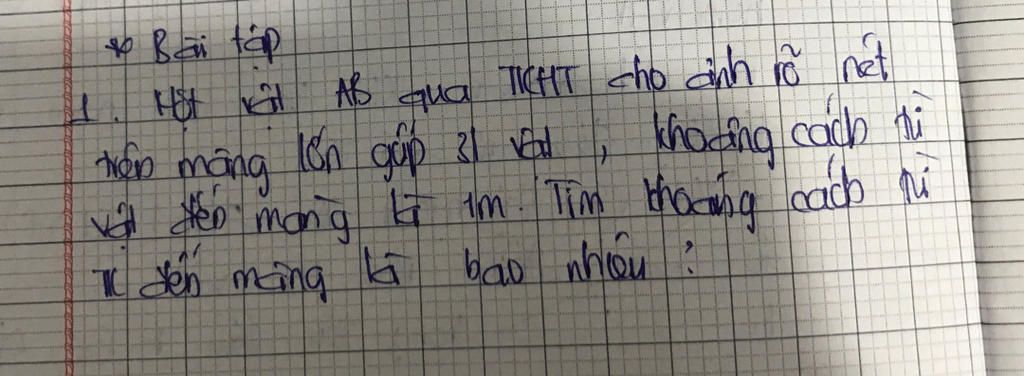 * Bài tập
1. Một vật AB qua TKHT cho ảnh rõ nét
trên màng lớn gấp 3 vật, khoảng cách từ
vật đến màng là 1m. Tìm khoảng cách từ
TK đến màng là bao nhiêu?